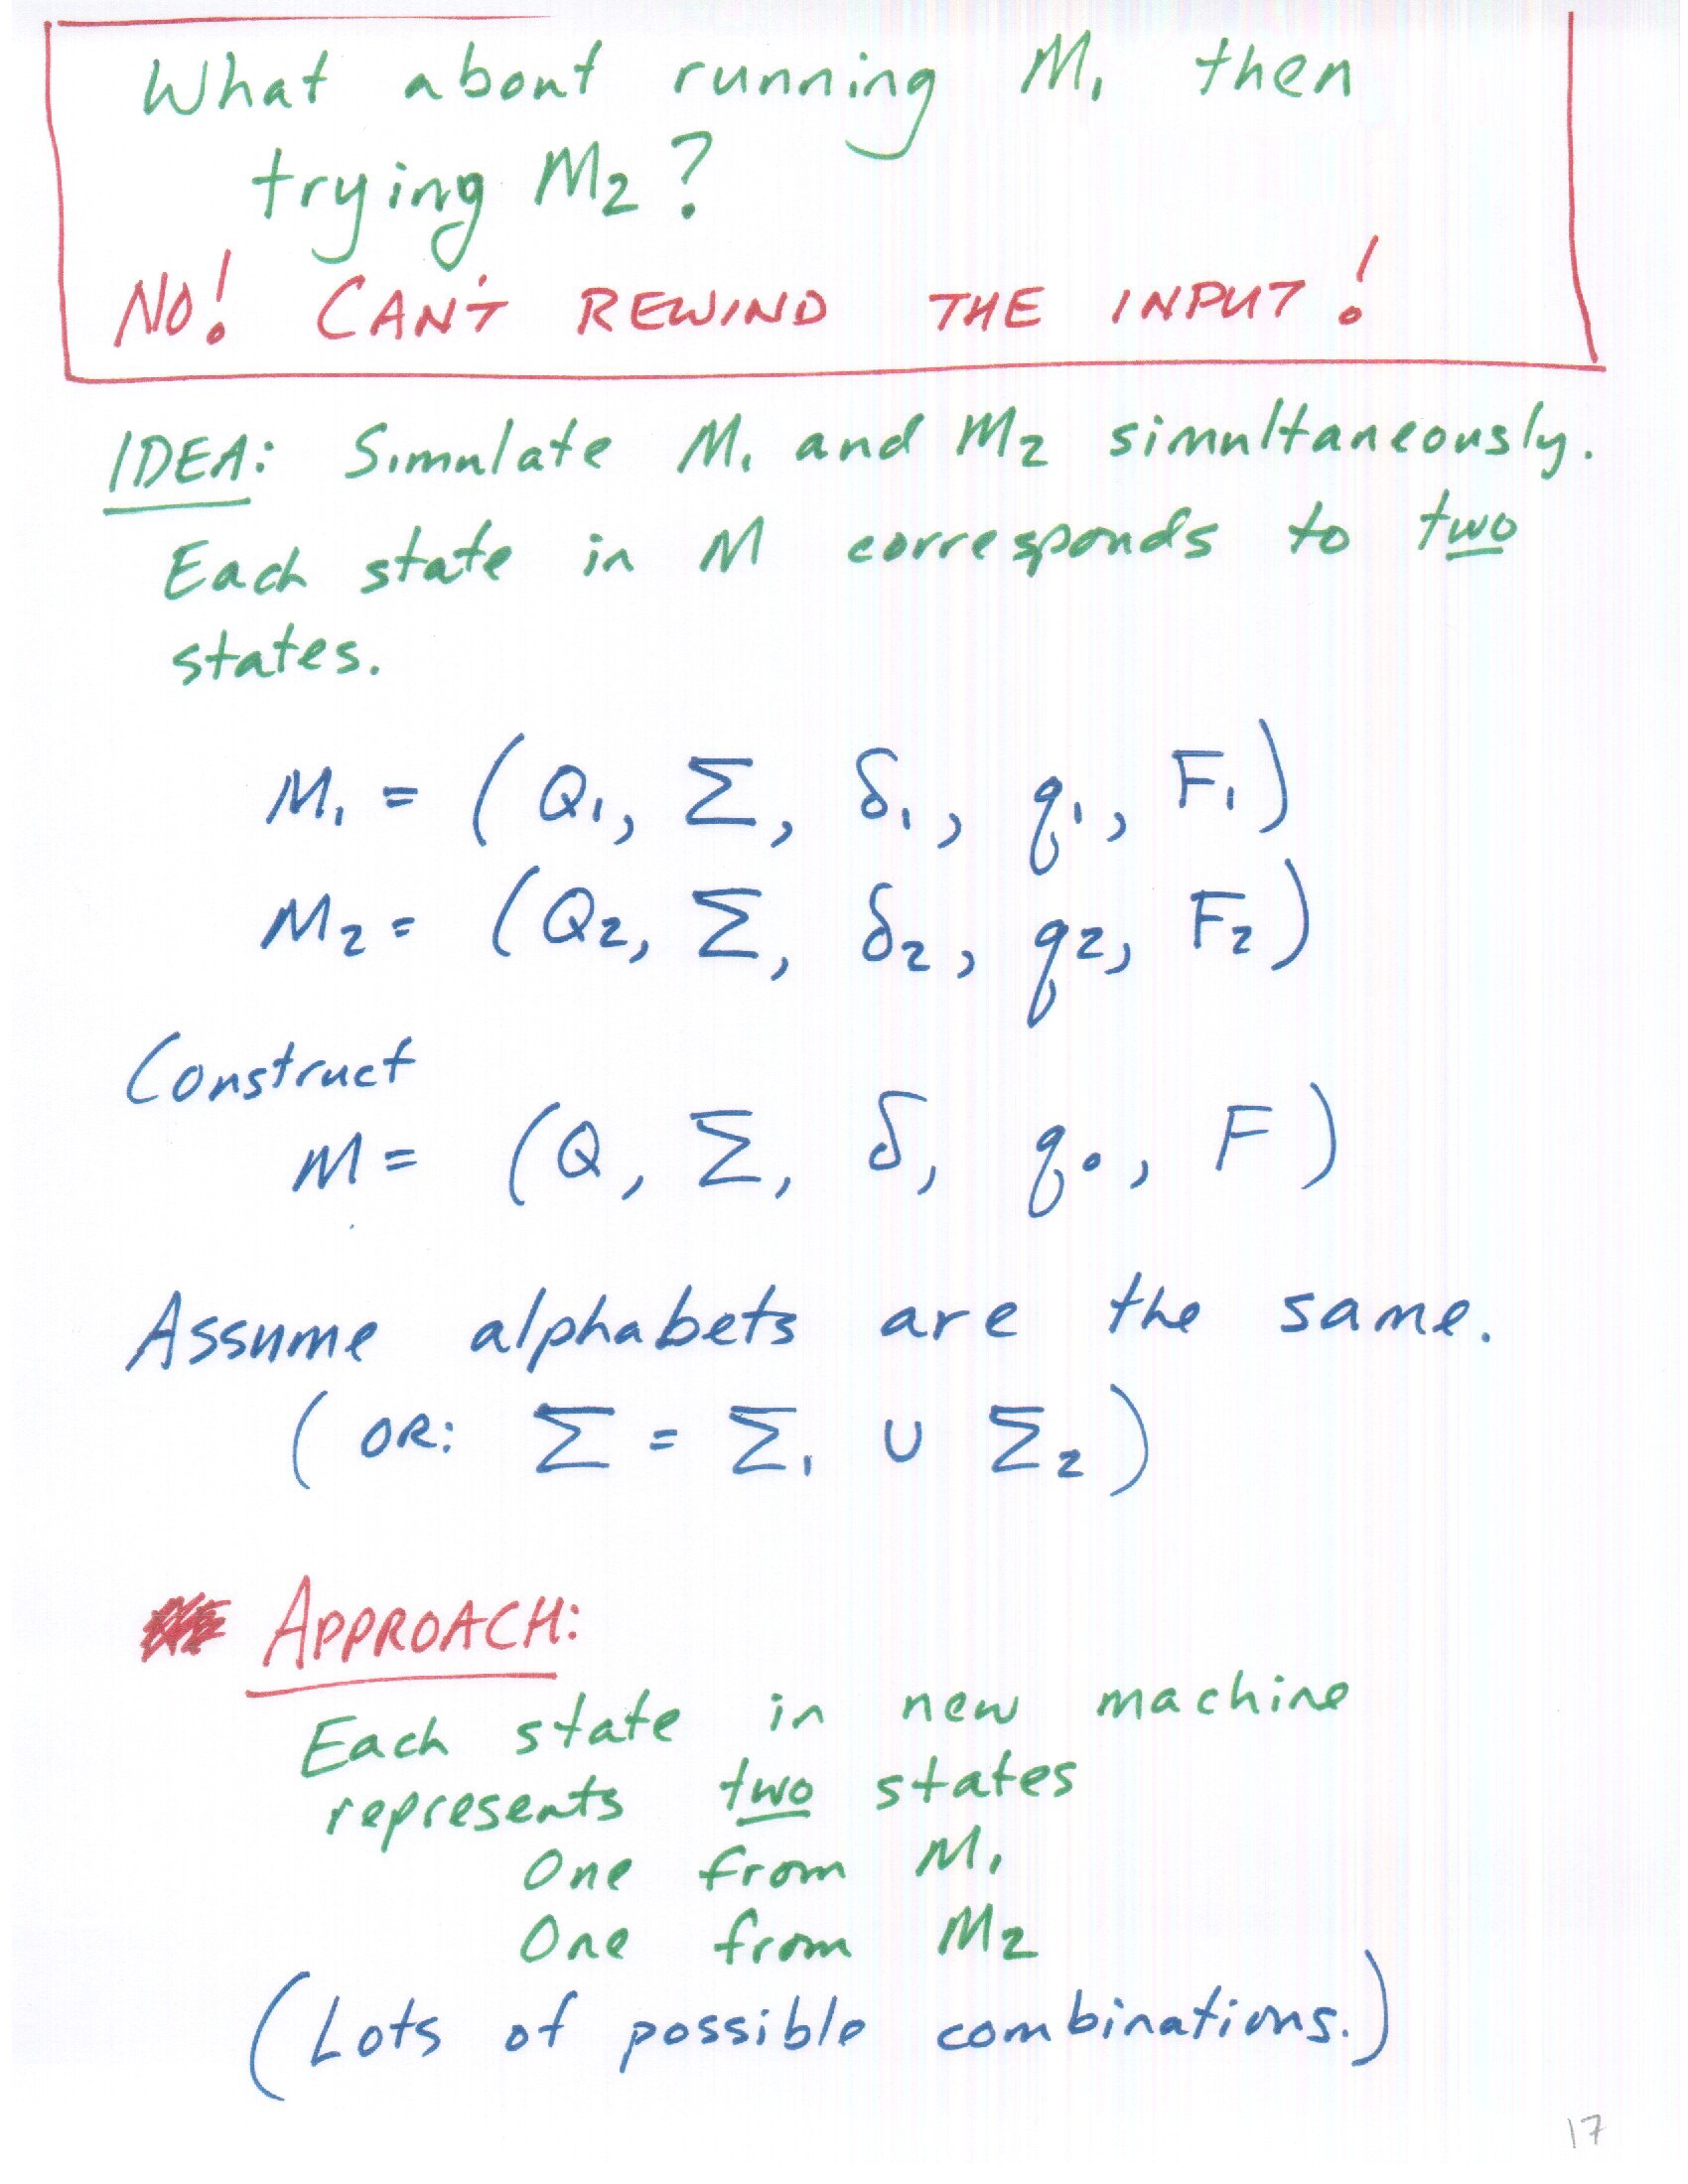 What about running M₁ then
trying M₂?
NO! CAN'T REWIND THE INPUT!
IDEA: Simulate M₁ and M₂ simultaneously.
Each state in M corresponds to two
states.
M₁ = (Q₁, Σ, δ₁, q₁, F₁)
M₂ = (Q₂, Σ, δ₂, q₂, F₂)
Construct
M = (Q, Σ, δ, q₀, F)
Assume alphabets are the same.
(OR: Σ = Σ₁ ∪ Σ₂)
APPROACH:
Each state in new machine
represents two states
One from M₁
One from M₂
(Lots of possible combinations.)
17